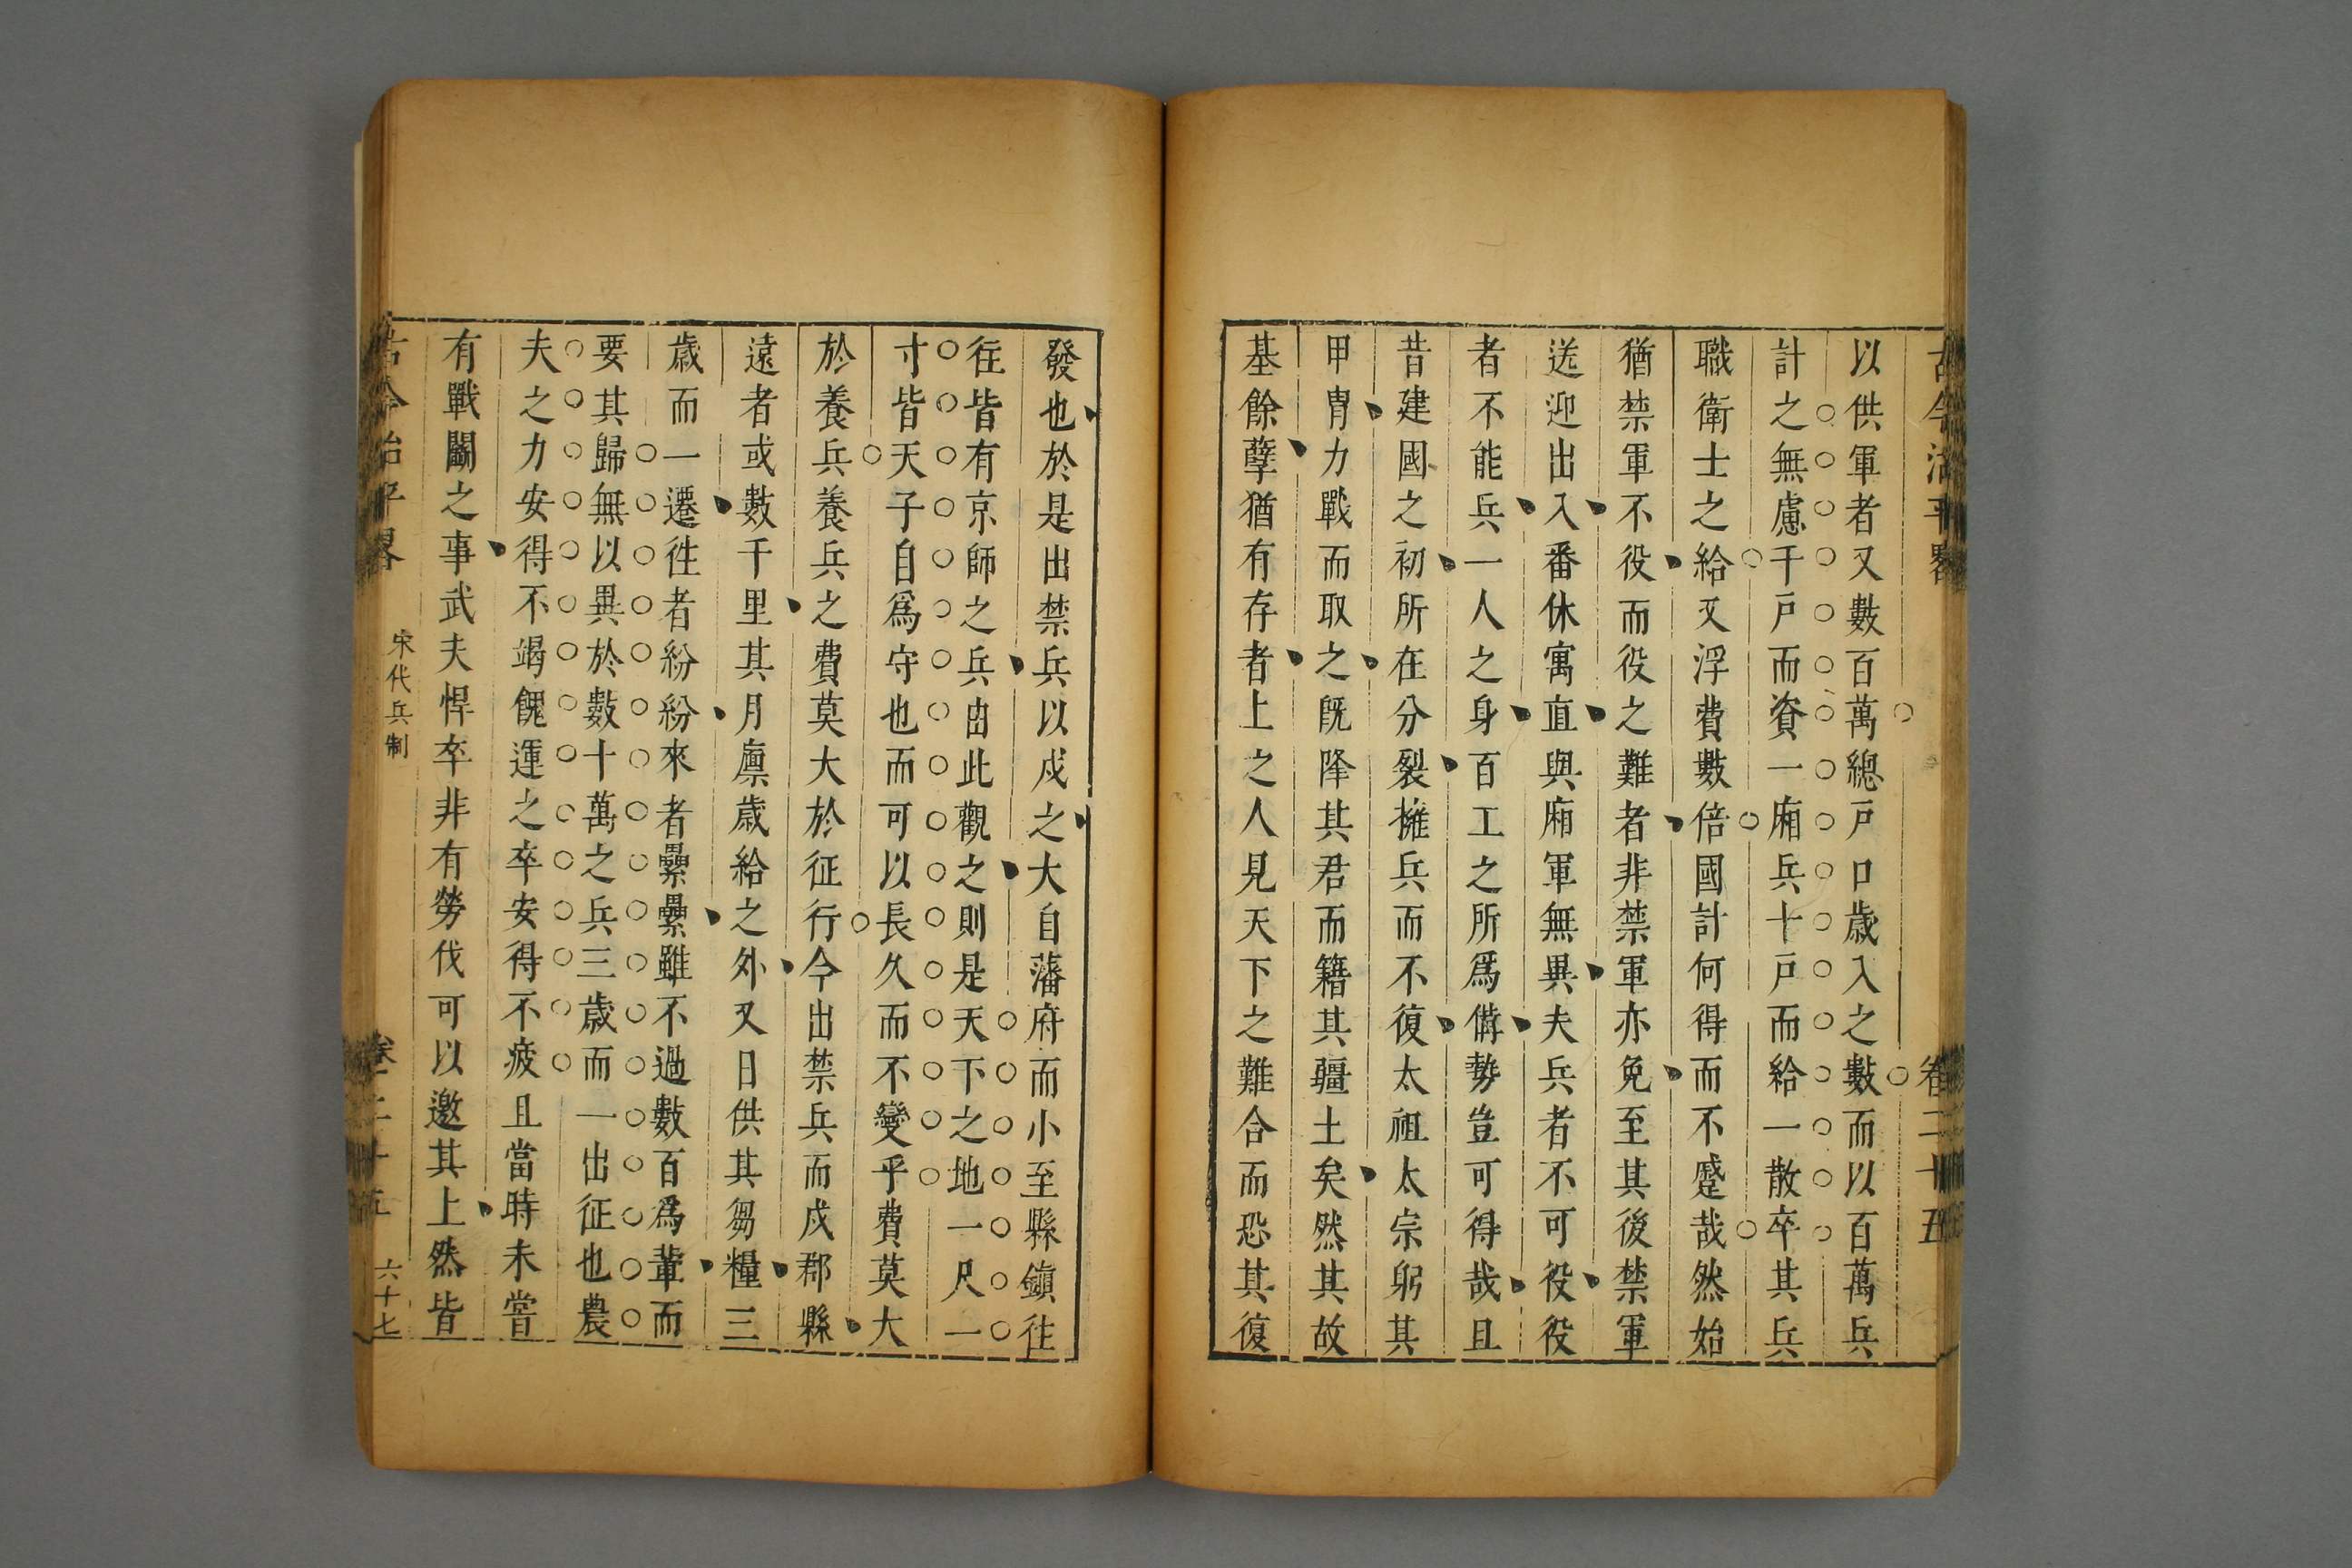 古今治平畧 卷二十五
以供軍者又數百萬總戸口歲入之數而以百萬兵
計之無慮千戸而資一廂兵十戸而給一散卒其兵
職衛士之給又浮費數倍國計何得而不蹙哉然始
猶禁軍不役而役之難者非禁軍亦免至其後禁軍
送迎出入番休寓直與廂軍無異夫兵者不可役役
者不能兵一人之身百工之所爲備勢豈可得哉且
昔建國之初所在分裂擁兵而不復太祖太宗躬其
甲冑力戰而取之旣降其君而籍其疆土矣然其故
基餘孽猶有存者上之人見天下之難合而恐其復
發也於是出禁兵以戍之大自藩府而小至縣鎭往
往皆有京師之兵由此觀之則是天下之地一尺一
寸皆天子自爲守也而可以長久而不變乎費莫大
於養兵養兵之費莫大於征行今出禁兵而戍郡縣
遠者或數千里其月廩歲給之外又日供其芻糧三
歲而一遷徃者紛紛來者纍纍雖不過數百爲輩而
要其歸無以異於數十萬之兵三歲而一出征也農
夫之力安得不竭餽運之卒安得不疲且當時未嘗
有戰鬭之事武夫悍卒非有勞伐可以邀其上然皆
古今治平畧 宋代兵制 卷二十五 六十七